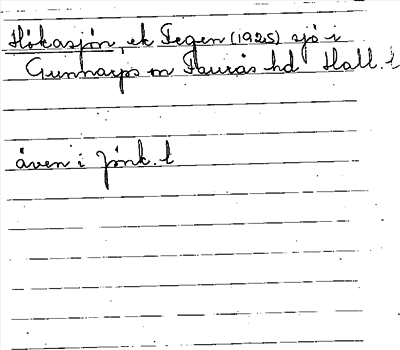 Hökasjön, ek Fegen (1925) sjö i
Gunnarps sn Faurås hd Hall. l
även i Jönk. l